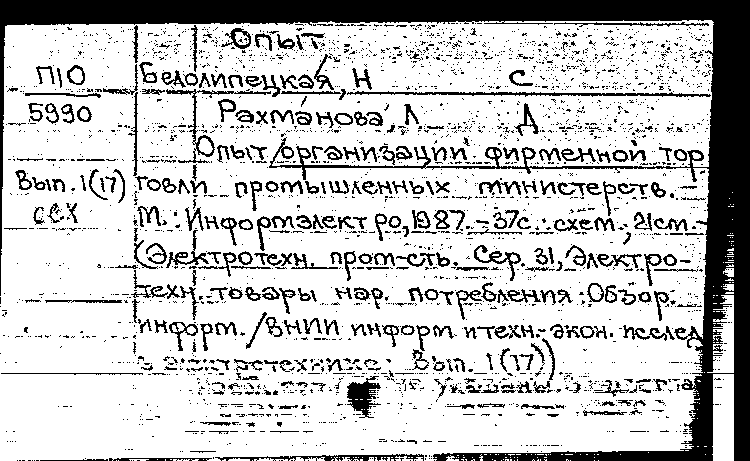 Опыт
П10 Белолипецкая, Н С
5990 Рахманова, Л Д
Опыт организации фирменной тор
Вып. 1(17) говли промышленных министерств. –
сех М.: Информэлектро, 1987. – 37с.: схем.; 21см. –
(Электротехн. пром-сть. Сер. 31, Электро-
техн. товары нар. потребления: Обзор.
информ. / ВНИИ информ и техн.-экон. исслед
в электротехнике; Вып. 1(17))
указаны